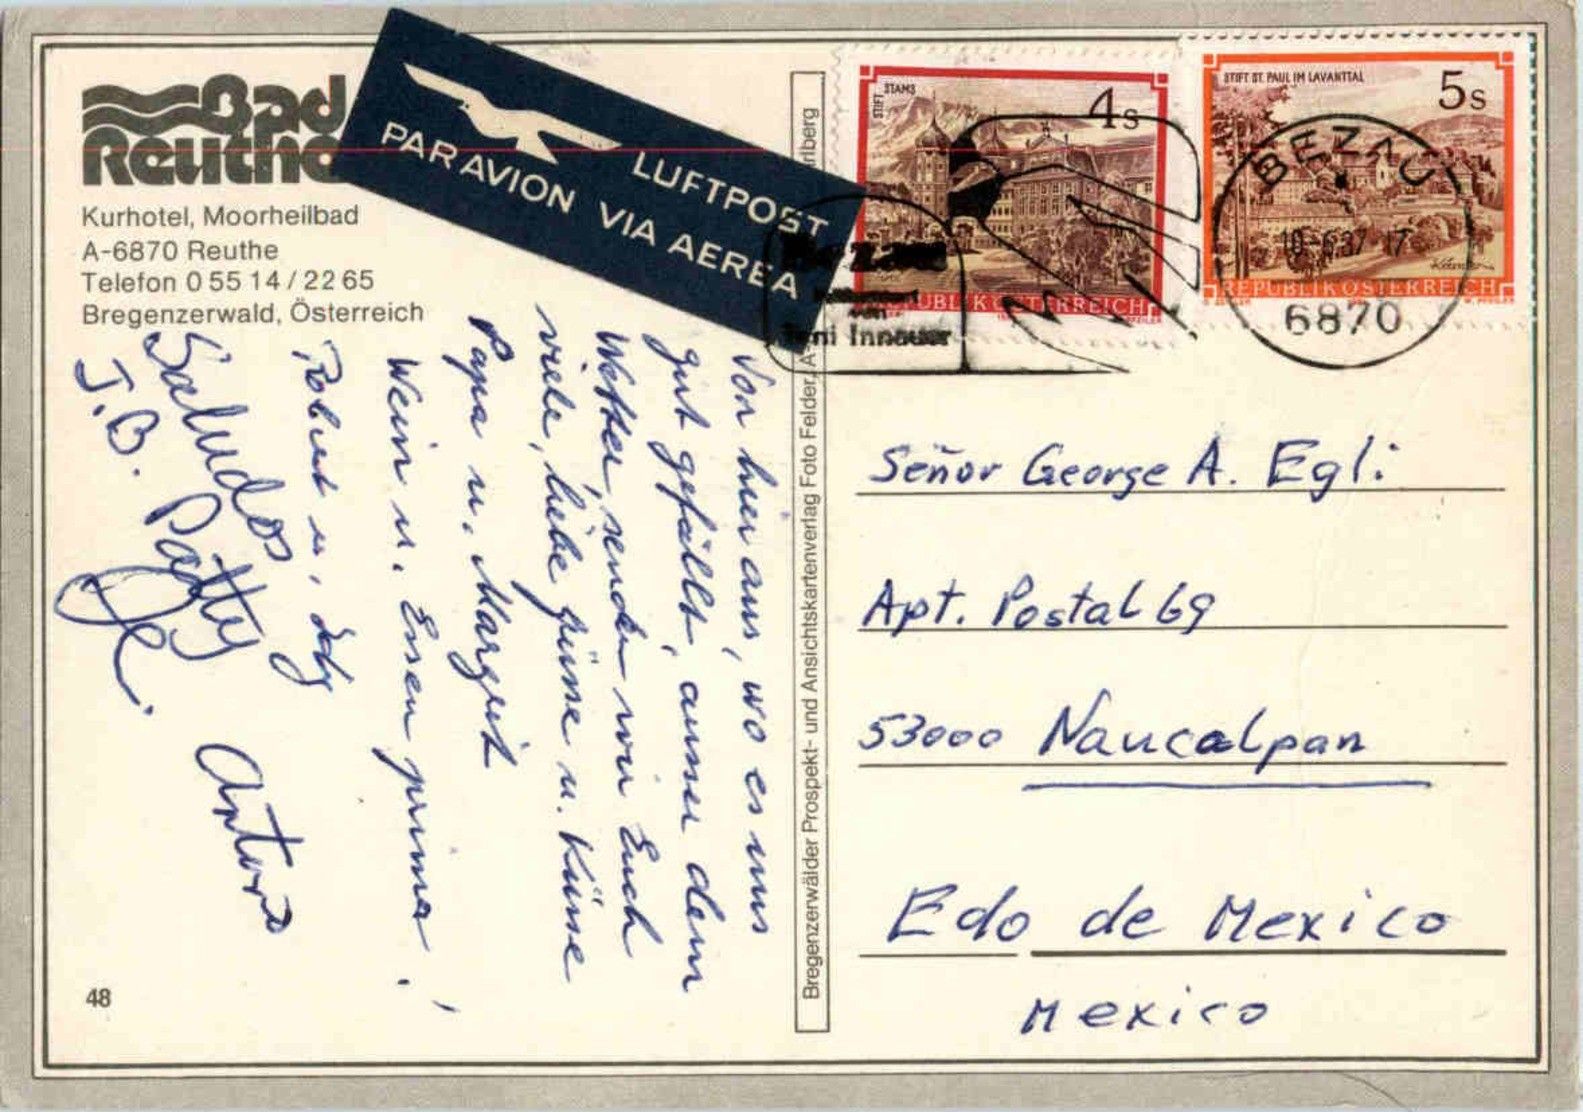 Bad
Reuthe
Kurhotel, Moorheilbad
A-6870 Reuthe
Telefon 0 55 14 / 22 65
Bregenzerwald, Österreich
LUFTPOST
PAR AVION VIA AEREA
STIFT STAMS
4s
REPUBLIK ÖSTERREICH
STIFT ST. PAUL IM LAVANTTAL
5s
REPUBLIK ÖSTERREICH
Bezau
Toni Innauer
BEZAU
10.-6.87-17
6870
Von hier aus, wo es uns
gut gefällt, ausser dem
Wetter, senden wir Euch
viele, liebe Grüsse u. Küsse
Papa u. Margrit
Wein u. Essen prima!
Robert u.
Saludos
J.B. Patty
Antonio
48
Bregenzerwälder Prospekt- und Ansichtskartenverlag Foto Felder, A-
Señor George A. Egli
Apt. Postal 69
53000 Naucalpan
Edo de Mexico
Mexico